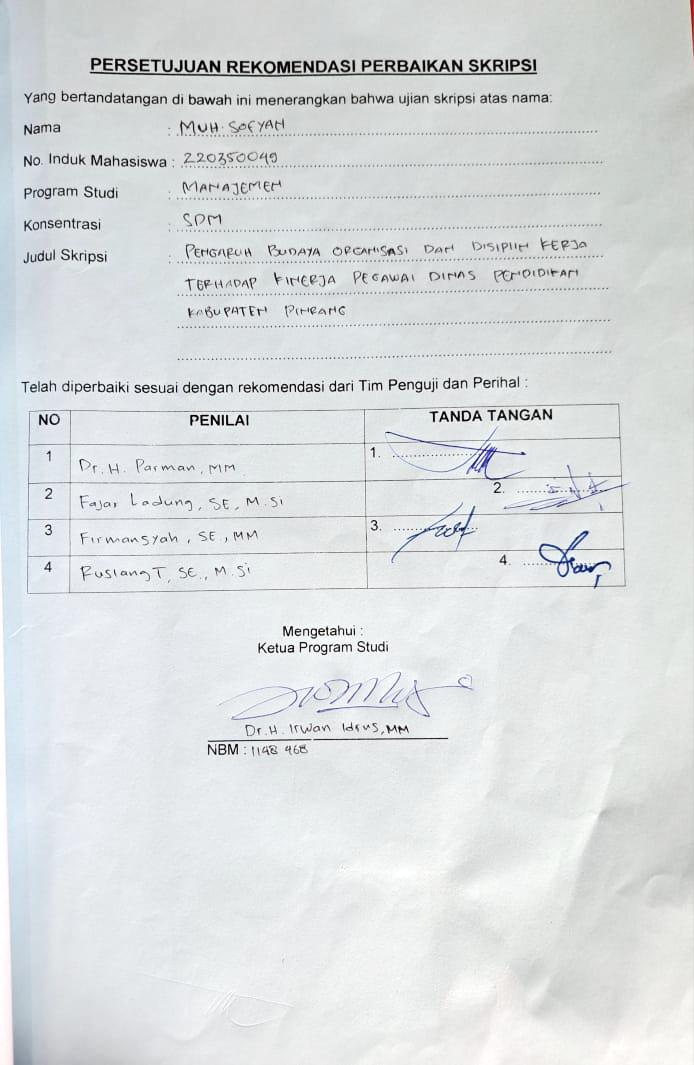 PERSETUJUAN REKOMENDASI PERBAIKAN SKRIPSI
Yang bertandatangan di bawah ini menerangkan bahwa ujian skripsi atas nama:
Nama : MUH. SOFYAN
No. Induk Mahasiswa : 220350049
Program Studi : MANAJEMEN
Konsentrasi : SDM
Judul Skripsi : PENGARUH BUDAYA ORGANISASI DAN DISIPLIN KERJA
TERHADAP KINERJA PEGAWAI DINAS PENDIDIKAN
KABUPATEN PINRANG
Telah diperbaiki sesuai dengan rekomendasi dari Tim Penguji dan Perihal :
NO PENILAI TANDA TANGAN
1 Dr. H. Parman, MM 1.
2 Fajar Ladung, SE, M.Si 2.
3 Firmansyah, SE., MM 3.
4 Ruslang T, SE., M.Si 4.
Mengetahui :
Ketua Program Studi
Dr. H. Irwan Idrus, MM
NBM : 1148 468